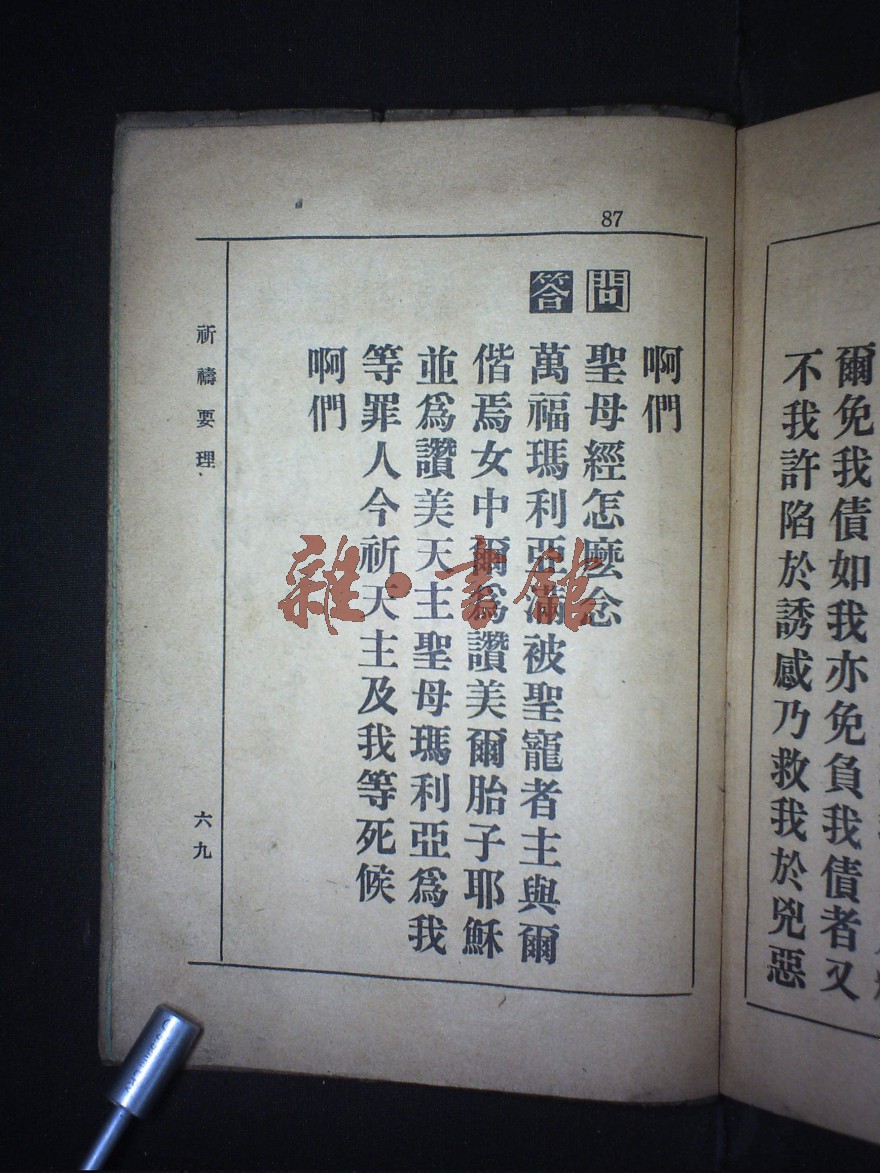 爾免我債如我亦免負我債者又
不我許陷於誘感乃救我於兇惡
87
啊們
問 聖母經怎麼念
答 萬福瑪利亞滿被聖寵者主與爾
偕焉女中爾爲讚美爾胎子耶穌
並爲讚美天主聖母瑪利亞爲我
等罪人今祈天主及我等死候
啊們
祈禱要理
六九
雜·書館